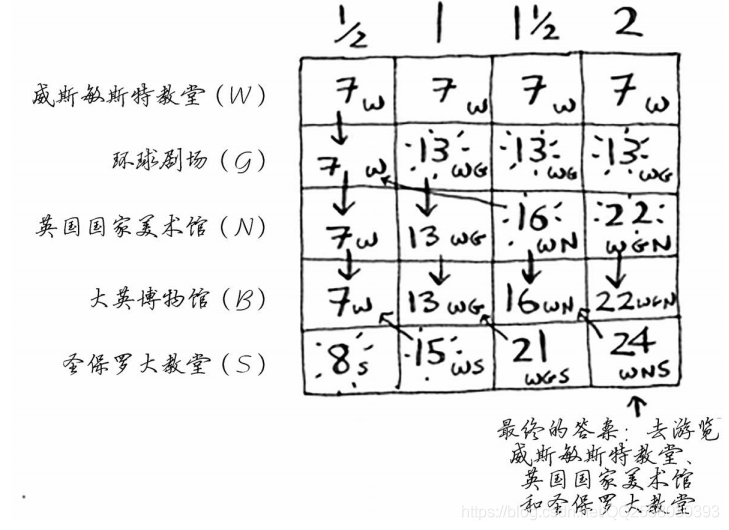 ½ 1 1½ 2
威斯敏斯特教堂(W) 7W 7W 7W 7W
环球剧场(G) 7W 13WG 13WG 13WG
英国国家美术馆(N) 7W 13WG 16WN 22WGN
大英博物馆(B) 7W 13WG 16WN 22WGN
圣保罗大教堂(S) 8S 15WS 21WGS 24WNS
最终的答案:去游览
威斯敏斯特教堂、
英国国家美术馆
和圣保罗大教堂